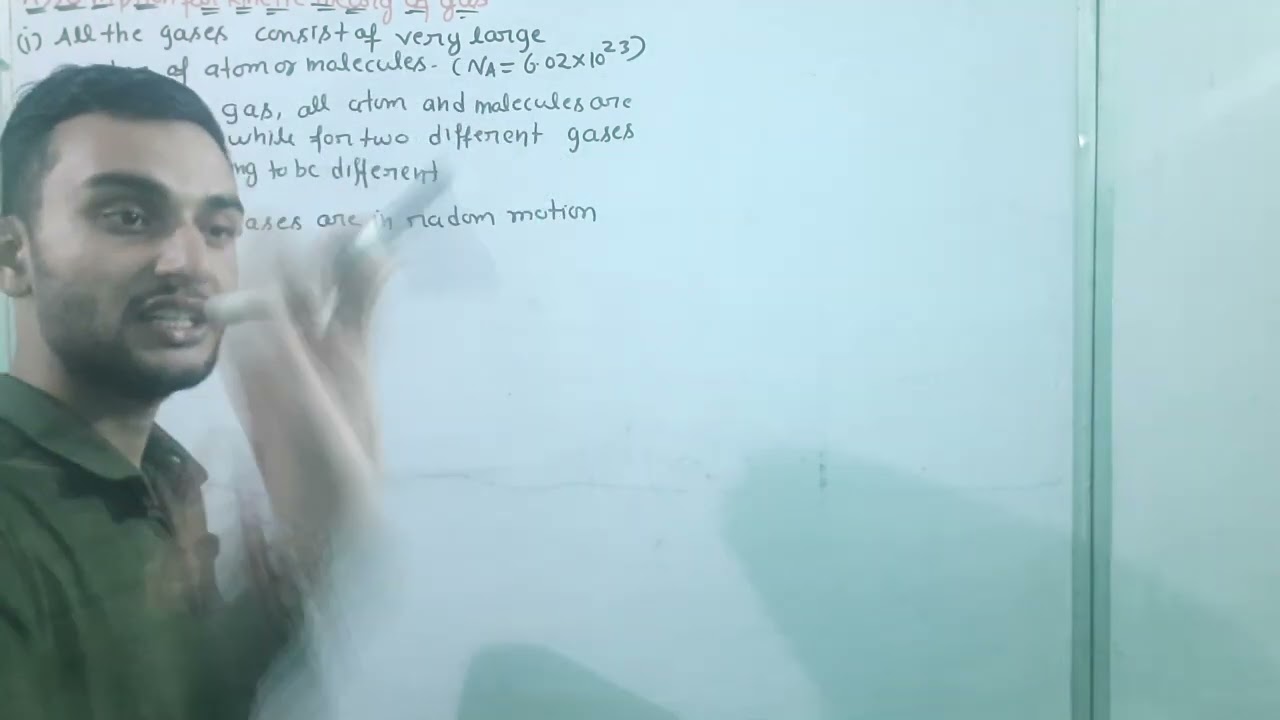 kinetic theory of gas
(i) All the gases consist of very large
of atom or molecules. (NA = 6.02×10²³)
gas, all atom and molecules are
while for two different gases
to be different
are in radom motion